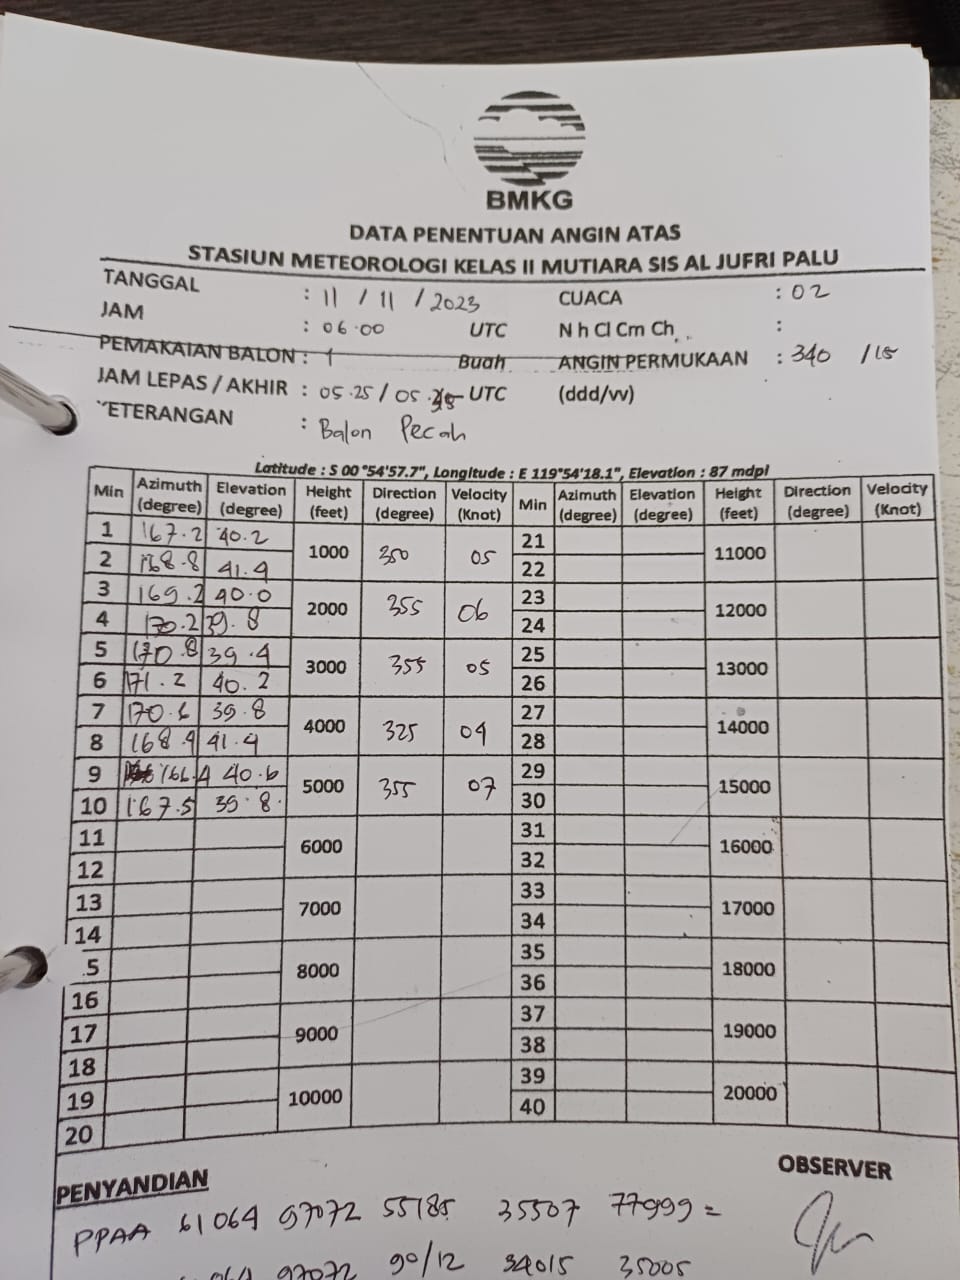 BMKG
DATA PENENTUAN ANGIN ATAS
STASIUN METEOROLOGI KELAS II MUTIARA SIS AL JUFRI PALU
TANGGAL : 11 / 11 / 2023 CUACA : 02
JAM : 06.00 UTC N h Cl Cm Ch :
PEMAKAIAN BALON : 1 Buah ANGIN PERMUKAAN : 340 /15
JAM LEPAS / AKHIR : 05.25 / 05. UTC (ddd/vv)
KETERANGAN : Balon Pecah
Latitude : S 00 °54'57.7", Longitude : E 119°54'18.1", Elevation : 87 mdpl
Min Azimuth (degree) Elevation (degree) Height (feet) Direction (degree) Velocity (Knot) Min Azimuth (degree) Elevation (degree) Height (feet) Direction (degree) Velocity (Knot)
1 167.2 40.2 1000 350 05 21 11000
2 168.8 41.4 22
3 169.2 40.0 2000 355 06 23 12000
4 170.2 39.8 24
5 170.8 39.4 3000 355 05 25 13000
6 171.2 40.2 26
7 170.6 39.8 4000 325 04 27 14000
8 168.4 41.4 28
9 166.4 40.6 5000 355 07 29 15000
10 167.5 39.8 30
11 6000 31 16000
12 32
13 7000 33 17000
14 34
.5 8000 35 18000
16 36
17 9000 37 19000
18 38
19 10000 39 20000
20 40
PENYANDIAN OBSERVER
PPAA 61064 97072 55185 35507 77999 =
97072 90/12 34015 35005